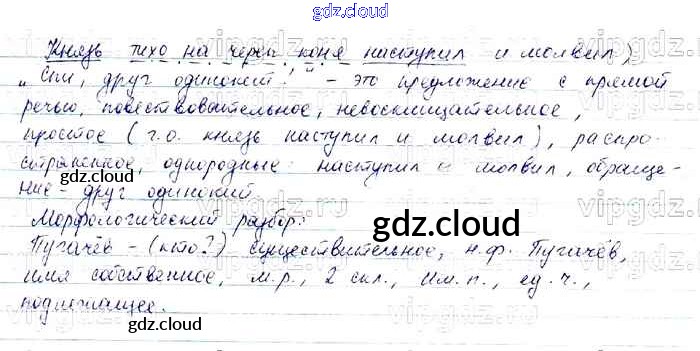 gdz.cloud
Князь тихо на череп коня наступил и молвил:
„Спи, друг одинокий!" - это предложение с прямой
речью, повествовательное, невосклицательное,
простое (г.о. князь наступил и молвил), распро-
странённое, однородные: наступил и молвил, обраще-
ние - друг одинокий.
gdz.cloud
Морфологический разбор:
gdz.cloud
Пугачёв - (кто?) существительное, н.ф. Пугачёв,
имя собственное, м.р., 2 скл., Им.п., ед.ч.,
подлежащее.
gdz.cloud
gdz.cloud